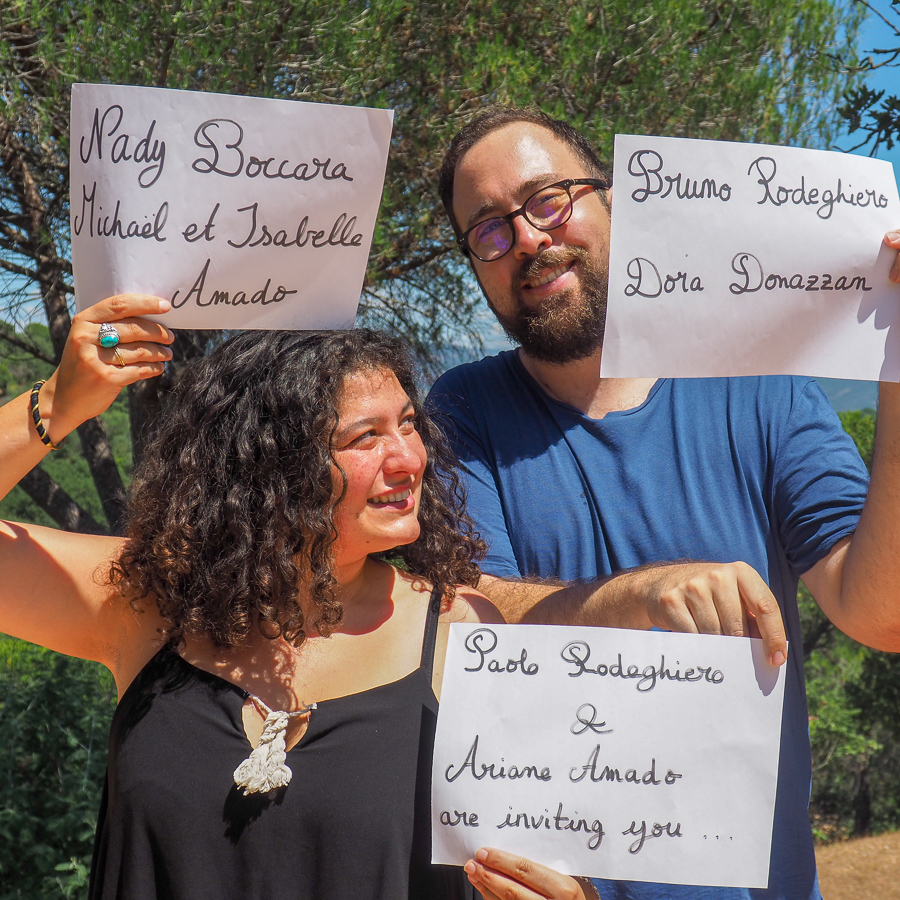 Nady Boccara
Michaël et Isabelle
Amado
Bruno Rodeghiero
Dora Donazzan
Paolo Rodeghiero
&
Ariane Amado
are inviting you ...